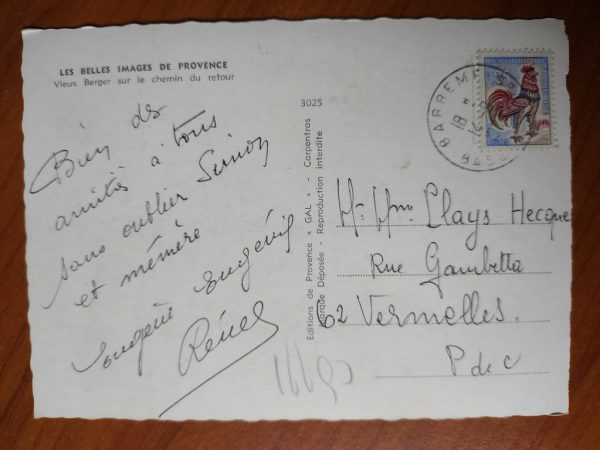 LES BELLES IMAGES DE PROVENCE
Vieux Berger sur le chemin du retour
Bien des
amitiés à tous
sans oublier Simon
et mémère
Eugénie
Renée
3025
Editions de Provence * GAL * - Carpentras
Marque Déposée - Reproduction Interdite
BARREME
18
BASSES
Mr Mme Clays Hecque
Rue Gambetta
62 Vermelles.
P de C